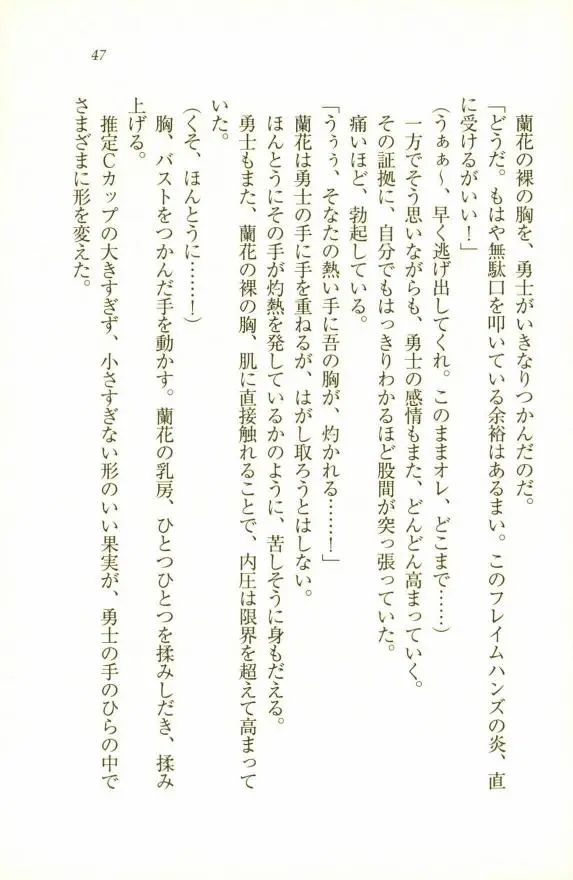 47
蘭花の裸の胸を、勇士がいきなりつかんだのだ。
「どうだ。もはや無駄口を叩いている余裕はあるまい。このフレイムハンズの炎、直
に受けるがいい！」
（うぁぁ～、早く逃げ出してくれ。このままオレ、どこまで……）
一方でそう思いながらも、勇士の感情もまた、どんどん高まっていく。
その証拠に、自分でもはっきりわかるほど股間が突っ張っていた。
痛いほど、勃起している。
「うぅぅ、そなたの熱い手に吾の胸が、灼かれる……！」
蘭花は勇士の手に手を重ねるが、はがし取ろうとはしない。
ほんとうにその手が灼熱を発しているかのように、苦しそうに身もだえる。
勇士もまた、蘭花の裸の胸、肌に直接触れることで、内圧は限界を超えて高まって
いた。
（くそ、ほんとうに……！）
胸、バストをつかんだ手を動かす。蘭花の乳房、ひとつひとつを揉みしだき、揉み
上げる。
推定Ｃカップの大きすぎず、小さすぎない形のいい果実が、勇士の手のひらの中で
さまざまに形を変えた。